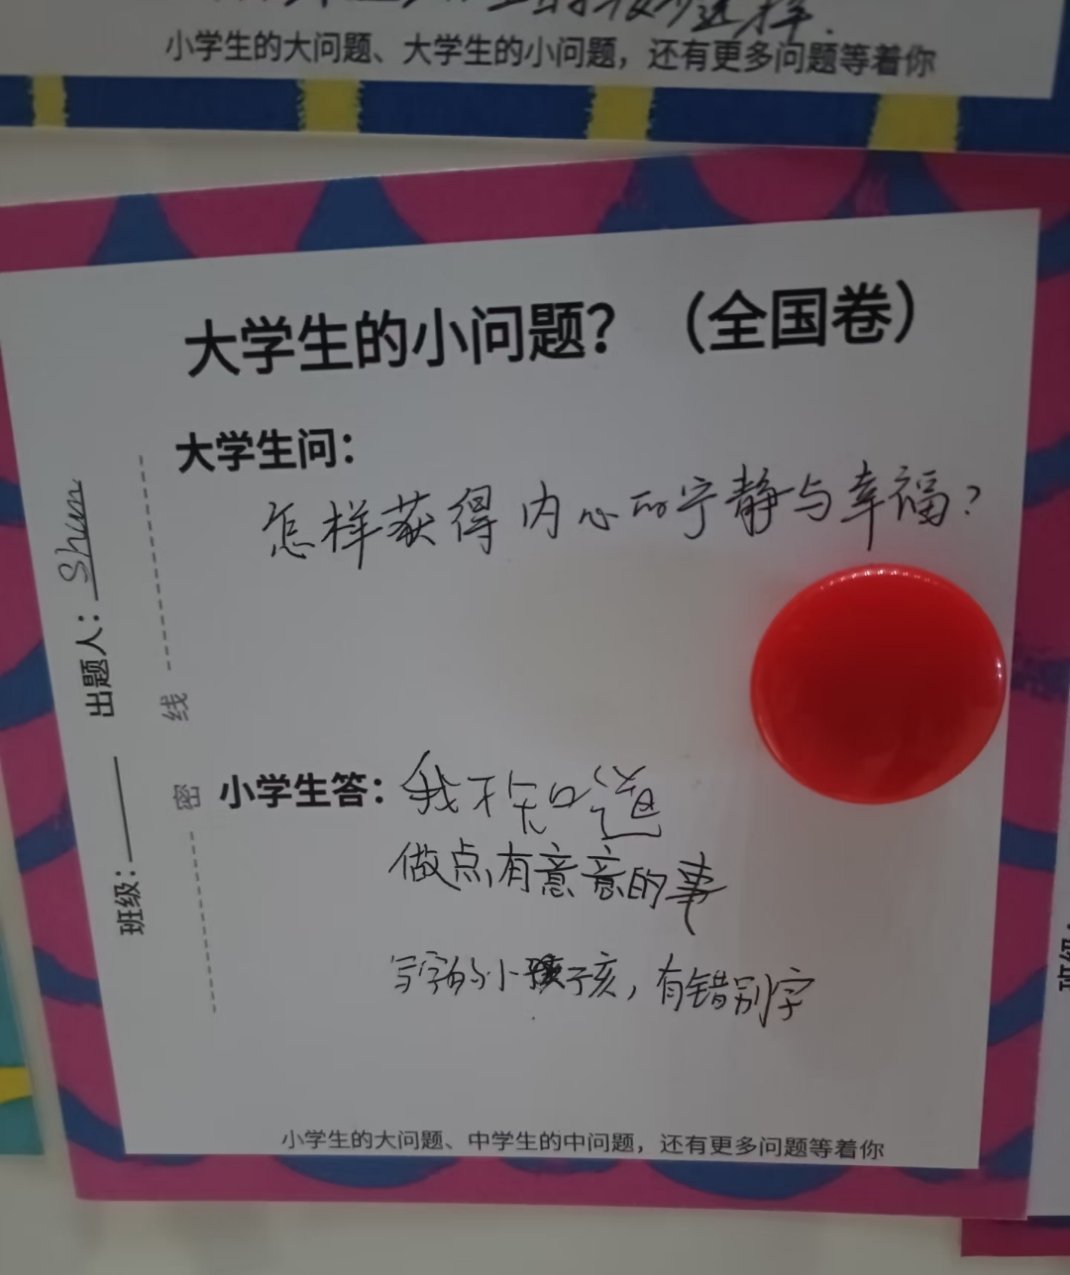 小学生的大问题、大学生的小问题，还有更多问题等着你
大学生的小问题？（全国卷）
大学生问：
怎样获得内心的宁静与幸福？
出题人：Shun
班级：
密 线
小学生答：我不知道
做点有意意的事
写字的小孩子亥，有错别字
小学生的大问题、中学生的中问题，还有更多问题等着你